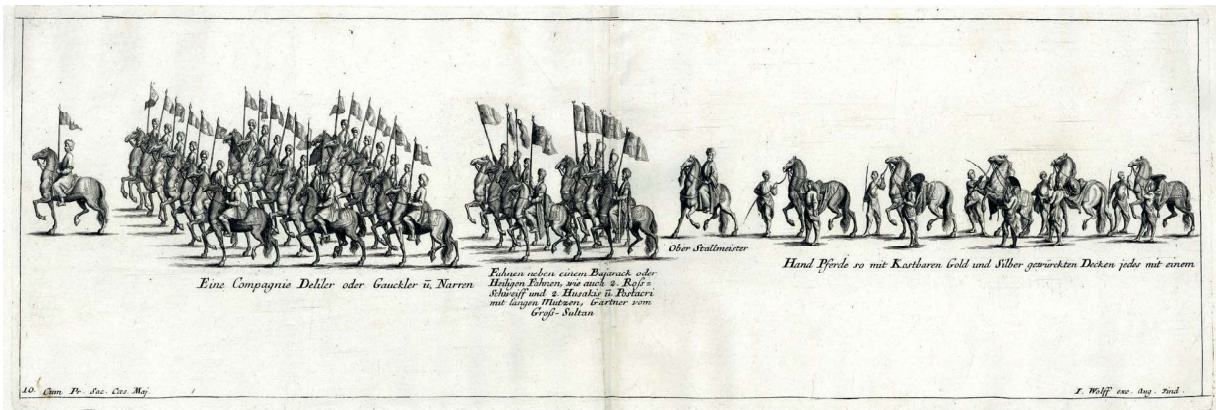 Eine Compagnie Deliler oder Gauckler ū, Narren
Fahnen neben einem Bajarack oder
Heiligen Fahnen, wie auch 2. Roß=
Schweiff und 2. Husakis ū Postacri
mit langen Mutzen, Gärtner vom
Groß-Sultan
Ober Stallmeister
Hand Pferde so mit Kostbaren Gold und Silber gewürckten Decken jedes mit einem
10. Cum Pr. Sac. Cæs. Maj.
I. Wolff exc. Aug. Vind.